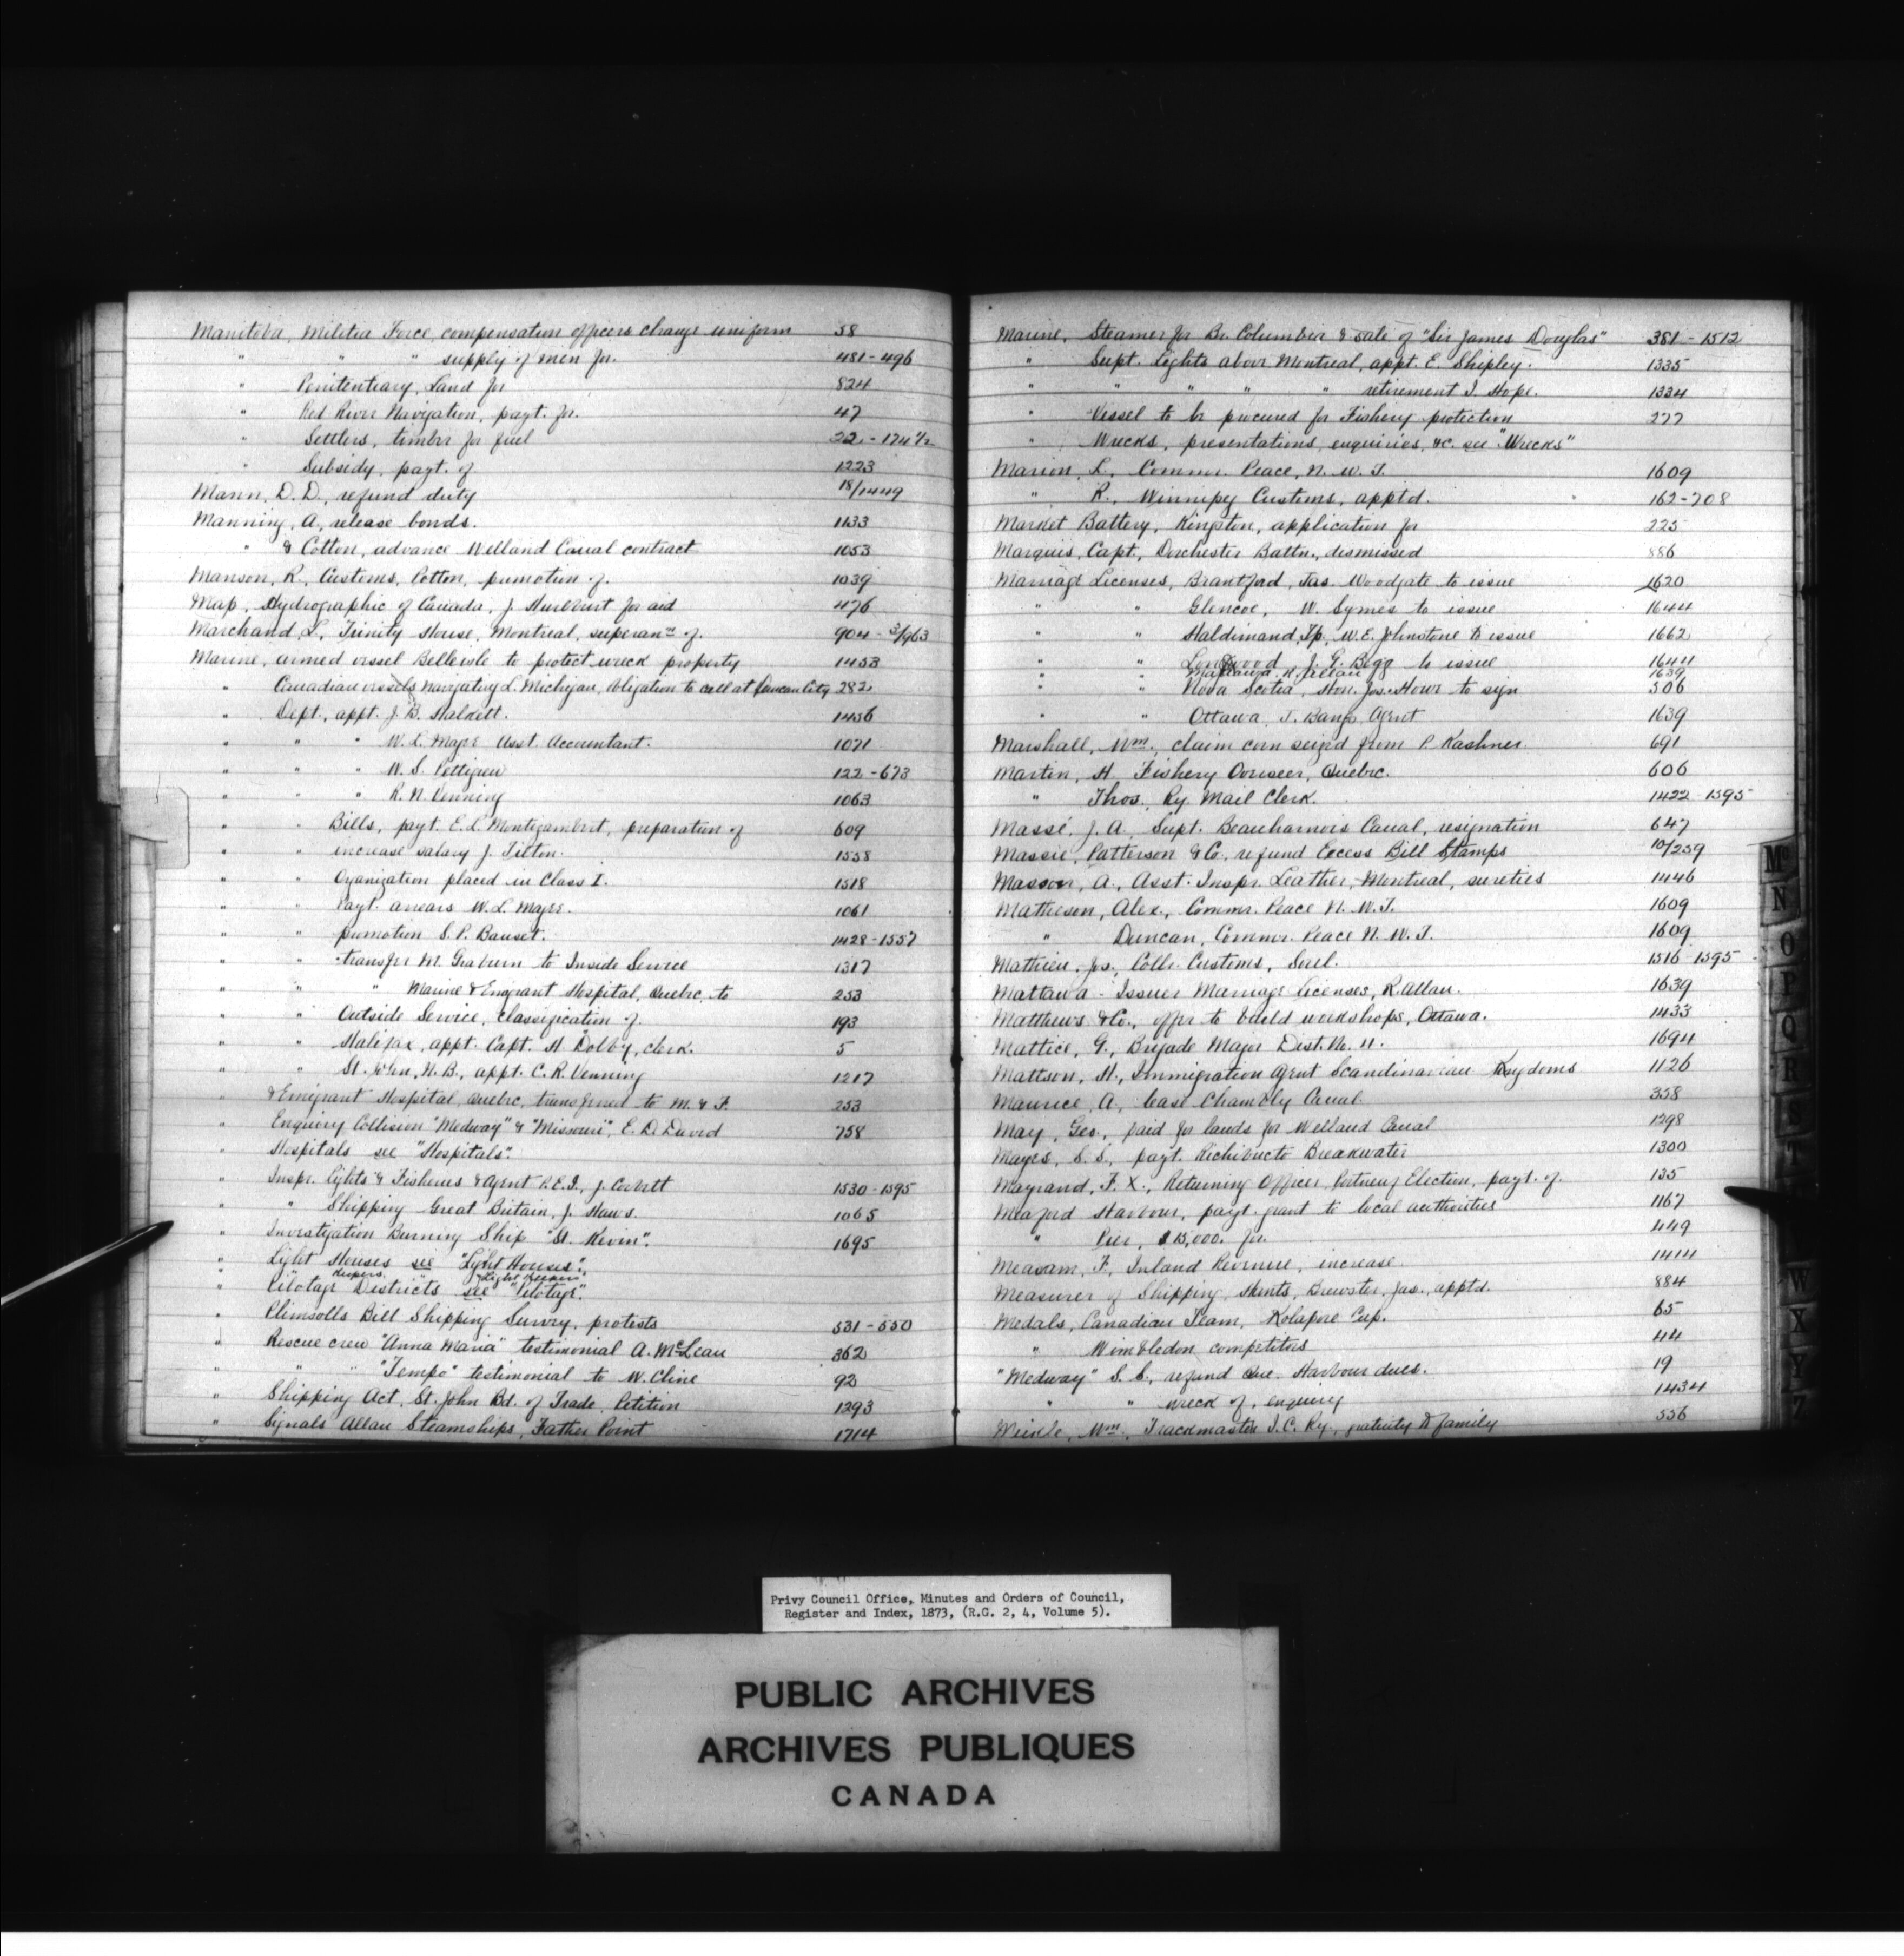 Manitoba, Militia Force, compensation officers change uniform 58
" " " supply of men for. 481-496
" Penitentiary, Land for 824
" Red River Navigation, payt. for. 47
" Settlers, timber for fuel 22-174 1/2
" Subsidy, payt. of 1223
Mann, D. D., refund duty 18/1449
Manning, A, release bonds. 1133
" & Cotton, advance Welland Canal contract 1053
Manson, R., Customs, Potton, promotion of. 1039
Map, Hydrographic of Canada, J. Hurlburt for aid 476
Marchand, L, Trinity House, Montreal, superann of. 904-3/963
Marine, armed vessel Belleisle to protect wreck property 1453
" Canadian vessels navigating L. Michigan, obligation to call at Duncan City 282
" Dept., appt. J. B. Halkett. 1456
" " " W. L. Magee Asst. Accountant. 1071
" " " W. S. Pettigrew 122-673
" " " R. N. Venning 1063
" " Bills, payt. E. L. Montizambert, preparation of 609
" " increase salary J. Tilton. 1558
" " Organization placed in Class I. 1518
" " Payt. arrears W. L. Magee. 1061
" " promotion S. P. Bauset. 1428-1557
" " transfer M. Graburn to Inside Service 1317
" " " Marine & Emigrant Hospital, Quebec, to 253
" " Outside Service, classification of. 193
" " Halifax, appt. Capt. H. Dolby, clerk. 5
" " St. John, N. B., appt. C. R. Venning 1217
" & Emigrant Hospital, Quebec, transferred to M. & F. 253
" Enquiry Collision "Medway" & "Missouri", E. D. David 758
" Hospitals see "Hospitals".
" Inspr. Lights & Fisheries & Agent P.E.I., J. Corbett 1530-1595
" " Shipping Great Britain, J. Haws. 1065
" Investigation Burning Ship "St. Kevin". 1695
" Light Houses see "Light Houses".
" " Keepers " "Light Keepers".
" Pilotage Districts see "Pilotage".
" Plimsolls Bill Shipping Survey, protests 531-550
" Rescue crew "Anna Maria" testimonial A. McLean 362
" " " "Tempo" testimonial to W. Cline 92
" Shipping Act, St. John Bd. of Trade, Petition 1293
" Signals Allan Steamships, Father Point 1714
Marine, Steamer for Br. Columbia & sale of "Sir James Douglas" 381-1512
" Supt. Lights above Montreal, appt. E. Shipley. 1335
" " " " " retirement I. Hope. 1334
" Vessel to be procured for Fishery protection 277
" Wrecks, presentations, enquiries, &c. see "Wrecks"
Marion, L., Commr. Peace, N. W. T. 1609
" R., Winnipeg Customs, apptd. 162-708
Market Battery, Kingston, application for 225
Marquis, Capt., Dorchester Battn., dismissed 886
Marriage Licenses, Brantford, Jas. Woodgate to issue 1620
" " Glencoe, W. Symes to issue 1644
" " Haldimand, Tp, W. E. Johnstone to issue 1662
" " Longwood J. G. Begg to issue 1644
Mattawa, R. Allan 1639
" " Nova Scotia, Hon. Jos. Howe to sign 306
" " Ottawa, T. Bangs Agent 1639
Marshall, Wm., claim corn seized from P. Kashner. 691
Martin, H, Fishery Overseer, Quebec. 606
" Thos., Ry. Mail Clerk. 1422 1595
Massé, J. A, Supt. Beauharnois Canal, resignation 647
Massie, Patterson & Co, refund Excess Bill Stamps 10/259
Masson, A., Asst. Inspr. Leather, Montreal, sureties 1446
Matheson, Alex., Commr. Peace N. W. T. 1609
" Duncan, Commr. Peace N. W. T. 1609
Mathieu, Jos., Collr. Customs, Sorel. 1516-1595
Mattawa - Issuer Marriage Licenses, R. Allan. 1639
Matthews & Co., offer to build workshops, Ottawa. 1433
Mattice, G., Brigade Major Dist. No. 11. 1694
Mattson, H., Immigration Agent Scandinavian Kingdoms 1126
Maurice, A., lease Chambly Canal. 358
May, Geo., paid for lands for Welland Canal 1298
Mayes, S. S., payt. Richibucto Breakwater 1300
Mayrand, F. X., Returning Officer, Portneuf Election, payt. of. 135
Meaford Harbour, payt. grant to local authorities 1167
" Pier, $15,000. for. 449
Measam, F, Inland Revenue, increase. 1414
Measurer of Shipping, Hants, Brewster, Jas., apptd. 884
Medals, Canadian Team, Kolapore Cup. 65
" Wimbledon competitors 44
"Medway" S. S., refund Que. Harbour dues. 19
" " wreck of, enquiry 1434
Meikle, Wm., Trackmaster I. C. Ry., gratuity to family 556
Mc
N
O
P
Q
R
S
T
W
X
Y
Z
Privy Council Office, Minutes and Orders of Council,
Register and Index, 1873, (R.G. 2, 4, Volume 5).
PUBLIC ARCHIVES
ARCHIVES PUBLIQUES
CANADA